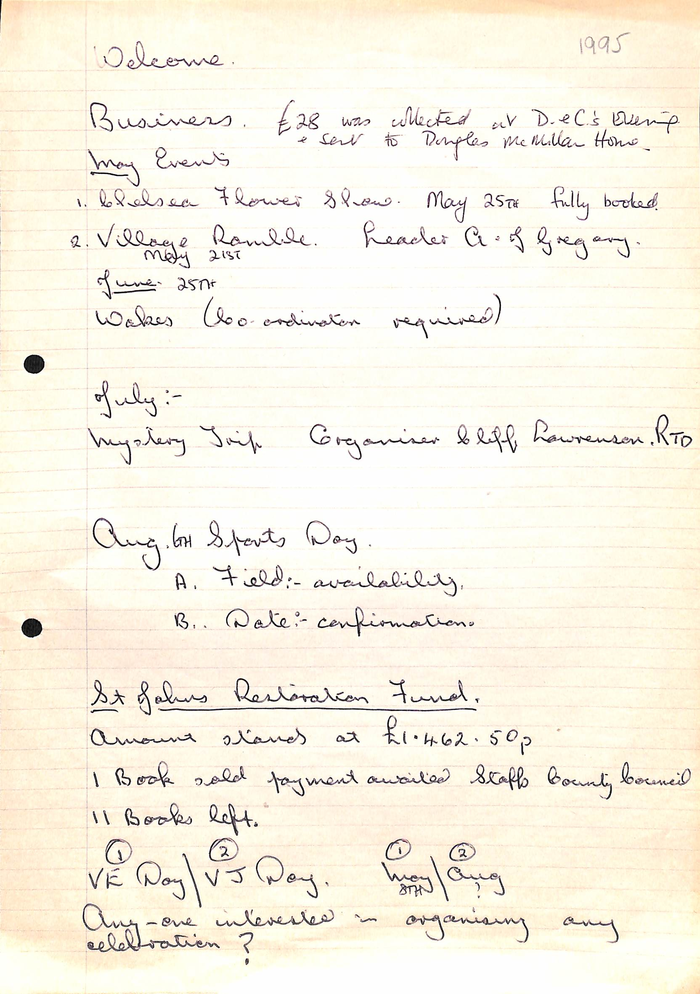 1995
Welcome.
Business. £28 was collected at D. & C's Evening
+ sent to Douglas McMillan Home.
May Events
1. Chelsea Flower Show. May 25TH fully booked.
2. Village Ramble. Leader G. J Gregory.
May 21ST
June 25TH
Wakes (Co-ordinator required)
July:-
Mystery Trip Organiser Cliff Lawrenson. RTD
Aug. 6TH Sports Day.
A. Field:- availability.
B.. Date:- confirmation.
St Johns Restoration Fund.
Amount stands at £1.462.50p
1 Book sold payment awaited Staffs County Council
11 Books left.
① ② ① ②
VE Day / VJ Day. May / Aug
8TH ?
Any-one interested in organising any
celebration ?